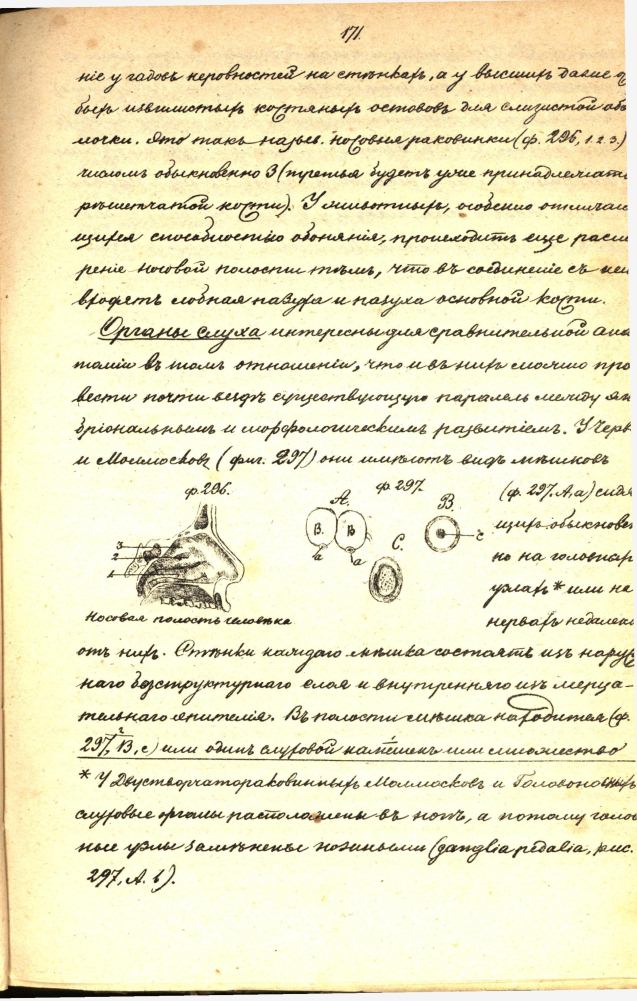 171.
ніе у гадовъ неровностей на стѣнкахъ, а у высшихъ далѣе
быхъ извилистыхъ костяныхъ остововъ для слизистой обо
лочки. Это такъ назыв. носовыя раковинки (ф. 296, 1. 2. 3.)
числомъ обыкновенно 3 (третья будетъ уже принадлежать
рѣшетчатой кости). У животныхъ, особенно отличаю
щихся способностію обонянія, происходитъ еще расши
реніе носовой полости тѣмъ, что въ соединеніе съ ней
входятъ лобная пазуха и пазуха основной кости.
Органы слуха интересны для сравнительной ана
томіи въ томъ отношеніи, что и въ нихъ можно про
вести почти вездѣ существующую паралель между эм
бріональнымъ и морфологическимъ развитіемъ. У Черв
и Моллюсковъ (фиг. 297) они имѣютъ видъ мѣшковъ
ф. 296.
3
2
1
Носовая полость человѣка
ф. 297.
А.
В. В
b a
В.
c
С.
(ф. 297. А. а) сидя
щихъ обыкновен
но на головныхъ
узлахъ * или на
нервахъ недалеко
отъ нихъ. Стѣнки каждаго мѣшка состоятъ изъ наруж
наго безструктурнаго слоя и внутренняго изъ мерца-
тельнаго эпителія. Въ полости мѣшка находится (ф.
297, В, с) или одинъ слуховой камешекъ или множество
* У Двустворчатораковинныхъ Моллюсковъ и Головоногихъ
слуховые органы расположены въ ногѣ, а потому голов
ные узлы замѣнены ножными (ganglia pedalia, рис.
297, А. b).